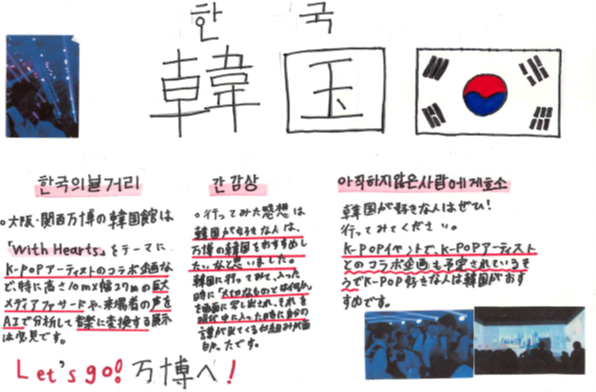 한국
韓国
한국의볼거리
○大阪・関西万博の韓国館は
「With Hearts」をテーマに
K-POPアーティストのコラボ企画な
ど、特に高さ10m×幅27mの巨大
メディアファサードや、来場者の声を
AIで分析して音楽に変換する展示
は必見です。
간감상
○行ってみた感想は
韓国が好きな人は、
万博の韓国をおすすめし
たいなと思いました。
韓国に行ってみて、入った
時に「大切なものとは何か」
を画面に写し出され、それを
次に入った時に自分の
言葉が出てくる仕組みが面
白かったです。
아직하지않은사람에게호소
韓国が好きな人はぜひ!
行ってみてください。
K-POPイベントで、K-POPアーティスト
とのコラボ企画も予定されているそ
うでK-POP好きな人は韓国がおす
すめです。
Let's go! 万博へ!